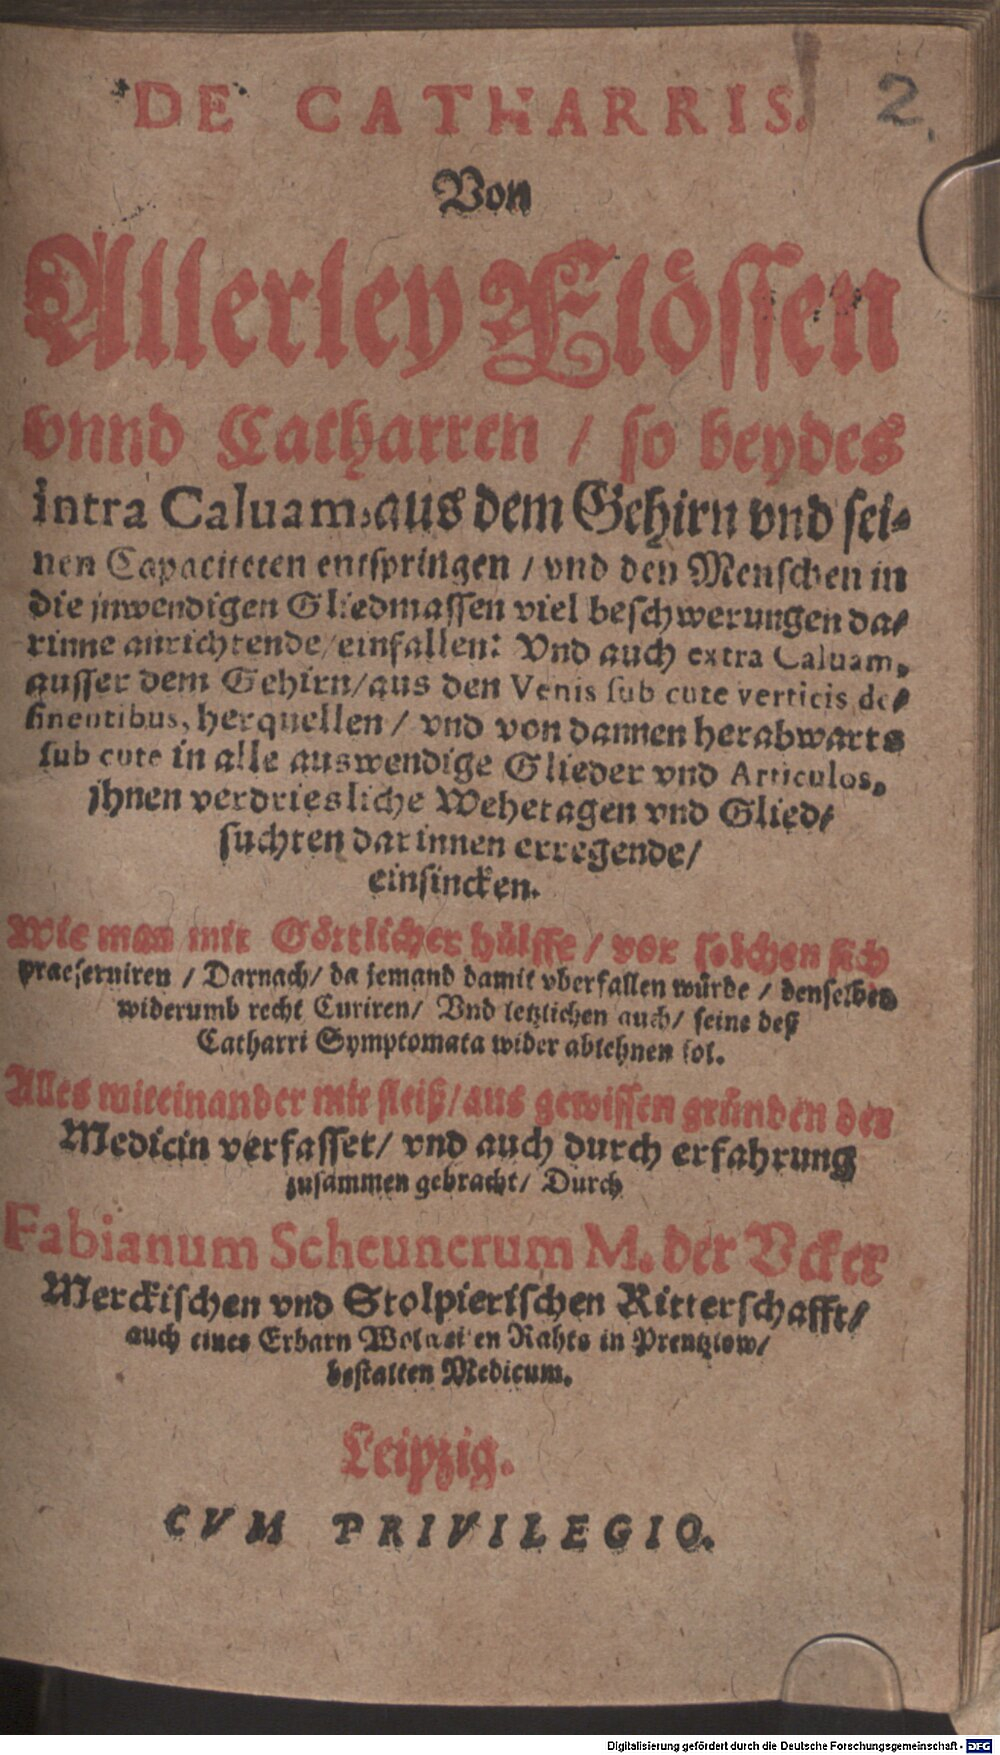 DE CATHARRIS.
2.
Von
Allerley Flössen
vnnd Catharren / so beydes
intra Caluam, aus dem Gehirn vnd sei-
nen Capaciteten entspringen / vnd den Menschen in
die jnwendigen Gliedmassen viel beschwerungen da-
rinne anrichtende / einfallen: Vnd auch extra Caluam,
ausser dem Gehirn / aus den Venis sub cute verticis de-
sinentibus, herquellen / vnd von dannen herabwarts
sub cute in alle auswendige Glieder vnd Articulos,
jhnen verdriesliche Wehetagen vnd Glied-
suchten darinnen erregende /
einsincken.
Wie man mit Göttlicher hülffe / vor solchen sich
praeseruiren / Darnach / da jemand damit vberfallen würde / denselben
widerumb recht Curiren / Vnd letzlichen auch / seine deß
Catharri Symptomata wider ablehnen sol.
Alles miteinander mit fleiß / aus gewissen gründen der
Medicin verfasset / vnd auch durch erfahrung
zusammen gebracht / Durch
Fabianum Scheunerum M. der Vcker
Merckischen vnd Stolpierischen Ritterschafft /
auch eines Erbarn Rahts in Prentzlow /
bestalten Medicum.
Leipzig.
CVM PRIVILEGIO.
Digitalisierung gefördert durch die Deutsche Forschungsgemeinschaft - DFG